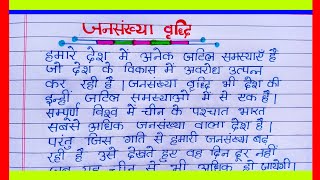 जनसंख्या वृद्धि
हमारे देश में अनेक जटिल समस्याएँ है
जो देश के विकास में अवरोध उत्पन्न
कर रही है। जनसंख्या वृद्धि भी देश की
इन्हीं जटिल समस्याओं में से एक है।
सम्पूर्ण विश्व में चीन के पश्चात भारत
सबसे अधिक जनसंख्या वाला देश है।
परंतु जिस गति से हमारी जनसंख्या बढ़
रही है उसे देखते हुए वह दिन दूर नहीं
जब यह चीन से भी अधिक हो जायेगी।